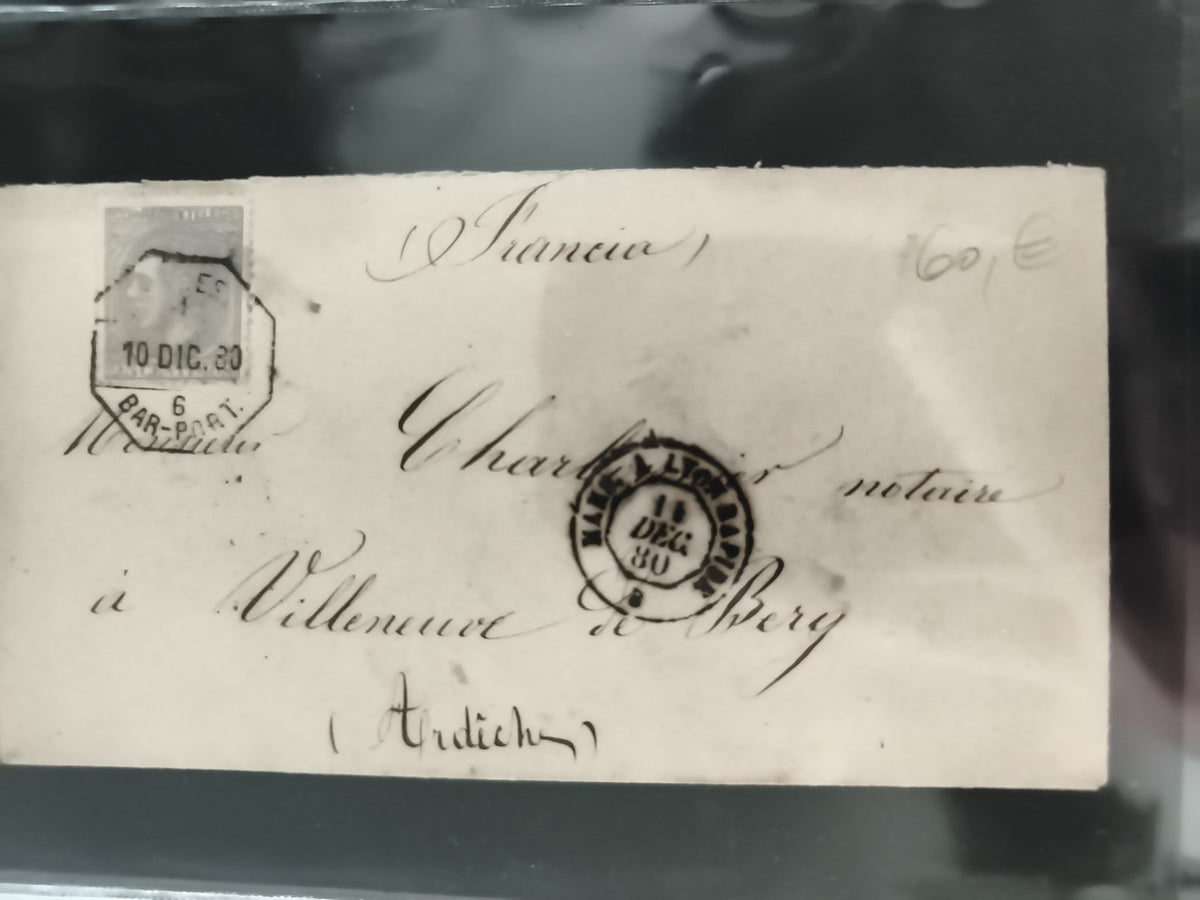 (Francia)
60,€
CORREOS Y TELEG
ES
1
10 DIC. 80
6
BAR-PORT.
Monsieur Charbonnier notaire
MARS. A LYON RAPIDE
11
DEC
80
à Villeneuve de Berg
(Ardèche)